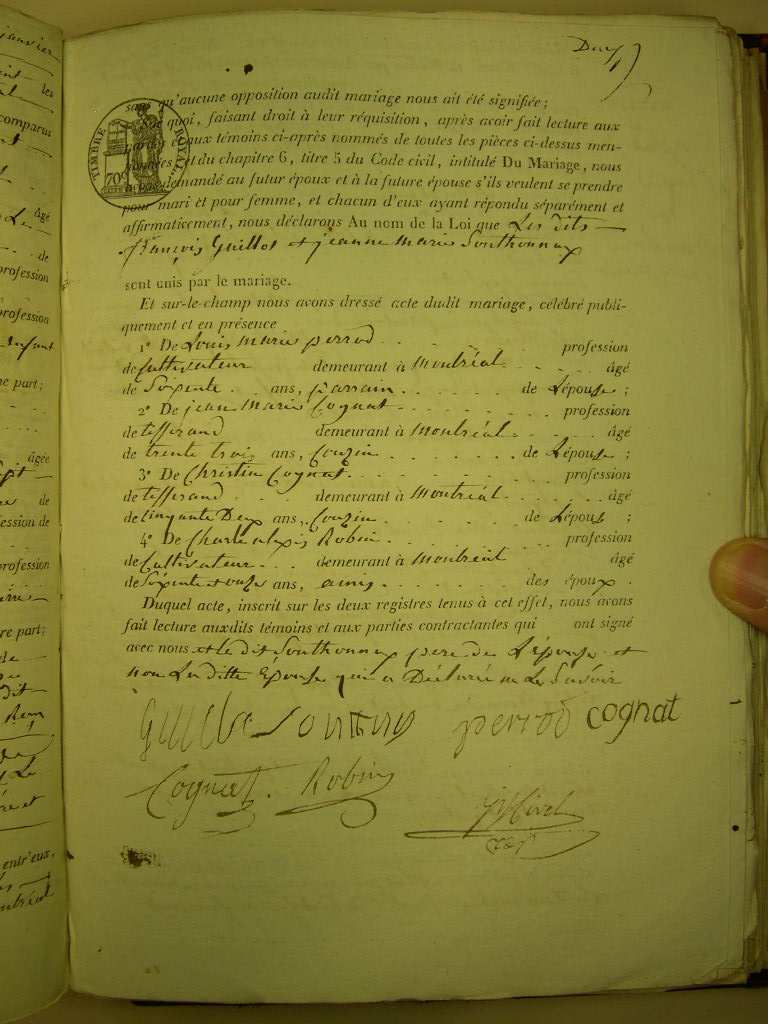 janvier
Deux
les
comparus
âgé
de
profession
profession
Enfant
re part;
âgée
de
ession de
profession
re part:
dit
entr'eux,
montréal
TIMBRE ROYAL
70c
sans qu'aucune opposition audit mariage nous ait été signifiée;
Sur quoi, faisant droit à leur réquisition, après avoir fait lecture aux
parties et aux témoins ci-après nommés de toutes les pièces ci-dessus men-
tionnées, et du chapitre 6, titre 5 du Code civil, intitulé Du Mariage, nous
avons demandé au futur époux et à la future épouse s'ils veulent se prendre
pour mari et pour femme, et chacun d'eux ayant répondu séparément et
affirmativement, nous déclarons Au nom de la Loi que Les dits
françois Guillot et jeanne marie Southonnax
sont unis par le mariage.
Et sur-le-champ nous avons dressé acte dudit mariage, célébré publi-
quement et en présence
1° De Louis Marie perrod profession
de Cultivateur demeurant à Montréal âgé
de Soxente ans, parrain de Lépouse ;
2° De jean Marie Cognat profession
de tisserand demeurant à Montréal âgé
de trente trois ans, Couzin de Lépouse ;
3° De Christin Cognat profession
de tisserand demeurant à Montréal âgé
de Cinquante Deux ans, Couzin de Lépouse ;
4° De Charle alexis Robin profession
de Cultivateur demeurant à Montréal âgé
de ans, amis des époux .
Duquel acte, inscrit sur les deux registres tenus à cet effet, nous avons
fait lecture auxdits témoins et aux parties contractantes qui ont signé
avec nous et le dit Southonnax pere de L'épouse et
non La ditte Epouse qui a Déclaré ne Le Savoir
perrod cognat
Cognat. Robin